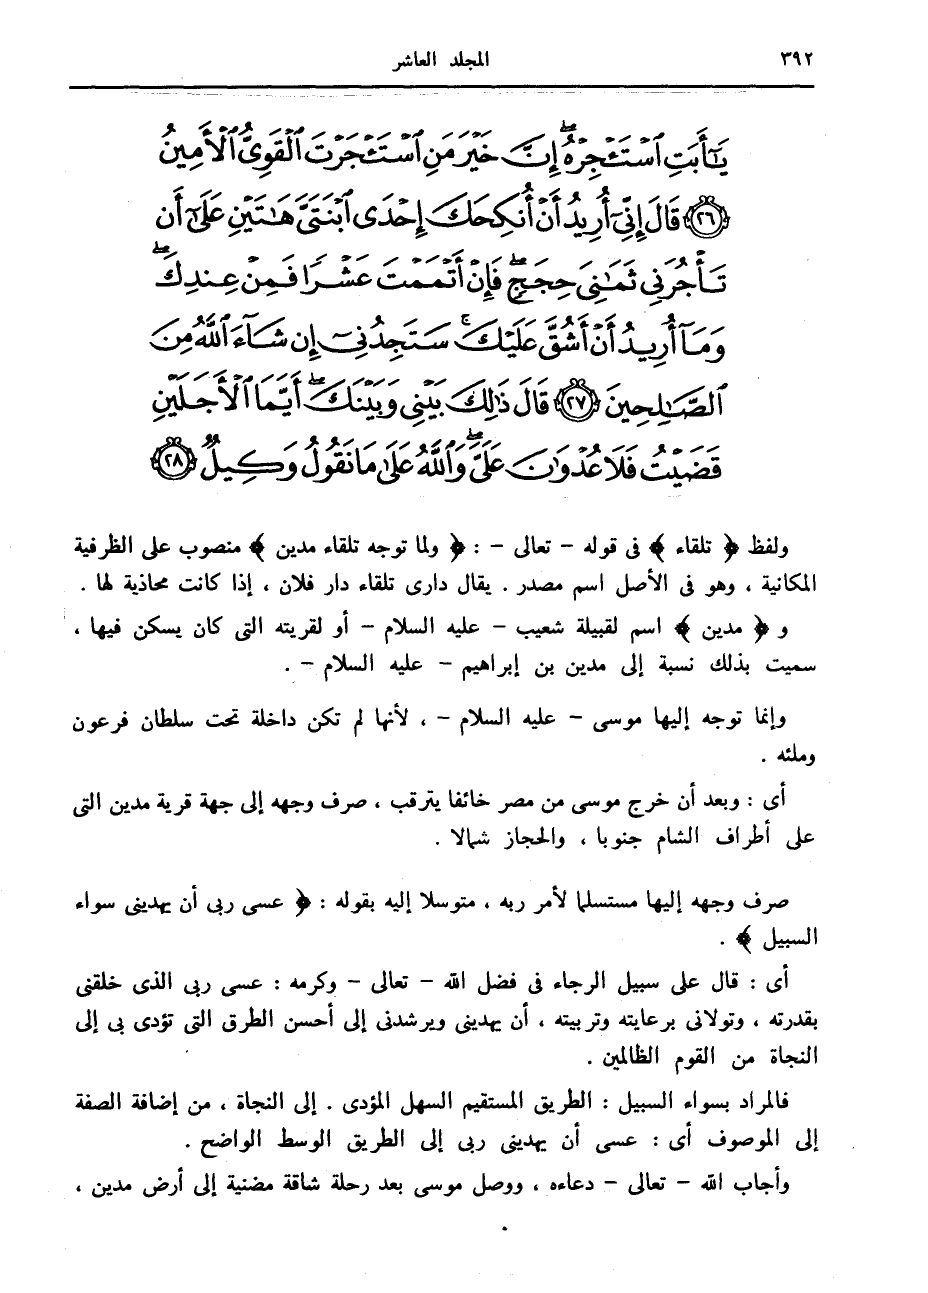 ٣٩٢ المجلد العاشر
يَٰٓأَبَتِ ٱسْتَـْٔجِرْهُ ۖ إِنَّ خَيْرَ مَنِ ٱسْتَـْٔجَرْتَ ٱلْقَوِىُّ ٱلْأَمِينُ
﴿٢٦﴾ قَالَ إِنِّىٓ أُرِيدُ أَنْ أُنكِحَكَ إِحْدَى ٱبْنَتَىَّ هَٰتَيْنِ عَلَىٰٓ أَن
تَأْجُرَنِى ثَمَٰنِىَ حِجَجٍ ۖ فَإِنْ أَتْمَمْتَ عَشْرًا فَمِنْ عِندِكَ ۖ
وَمَآ أُرِيدُ أَنْ أَشُقَّ عَلَيْكَ ۚ سَتَجِدُنِىٓ إِن شَآءَ ٱللَّهُ مِنَ
ٱلصَّٰلِحِينَ ﴿٢٧﴾ قَالَ ذَٰلِكَ بَيْنِى وَبَيْنَكَ ۖ أَيَّمَا ٱلْأَجَلَيْنِ
قَضَيْتُ فَلَا عُدْوَٰنَ عَلَىَّ ۖ وَٱللَّهُ عَلَىٰ مَا نَقُولُ وَكِيلٌ ﴿٢٨﴾
ولفظ ﴿ تلقاء ﴾ فى قوله – تعالى – : ﴿ ولما توجه تلقاء مدين ﴾ منصوب على الظرفية
المكانية ، وهو فى الأصل اسم مصدر . يقال دارى تلقاء دار فلان ، إذا كانت محاذية لها .
و ﴿ مدين ﴾ اسم لقبيلة شعيب – عليه السلام – أو لقريته التى كان يسكن فيها ،
سميت بذلك نسبة إلى مدين بن إبراهيم – عليه السلام – .
وإنما توجه إليها موسى – عليه السلام – ، لأنها لم تكن داخلة تحت سلطان فرعون
وملئه .
أى : وبعد أن خرج موسى من مصر خائفا يترقب ، صرف وجهه إلى جهة قرية مدين التى
على أطراف الشام جنوبا ، والحجاز شمالا .
صرف وجهه إليها مستسلما لأمر ربه ، متوسلا إليه بقوله : ﴿ عسى ربى أن يهدينى سواء
السبيل ﴾ .
أى : قال على سبيل الرجاء فى فضل الله – تعالى – وكرمه : عسى ربى الذى خلقنى
بقدرته ، وتولانى برعايته وتربيته ، أن يهدينى ويرشدنى إلى أحسن الطرق التى تؤدى بى إلى
النجاة من القوم الظالمين .
فالمراد بسواء السبيل : الطريق المستقيم السهل المؤدى . إلى النجاة ، من إضافة الصفة
إلى الموصوف أى : عسى أن يهدينى ربى إلى الطريق الوسط الواضح .
وأجاب الله – تعالى – دعاءه ، ووصل موسى بعد رحلة شاقة مضنية إلى أرض مدين ،